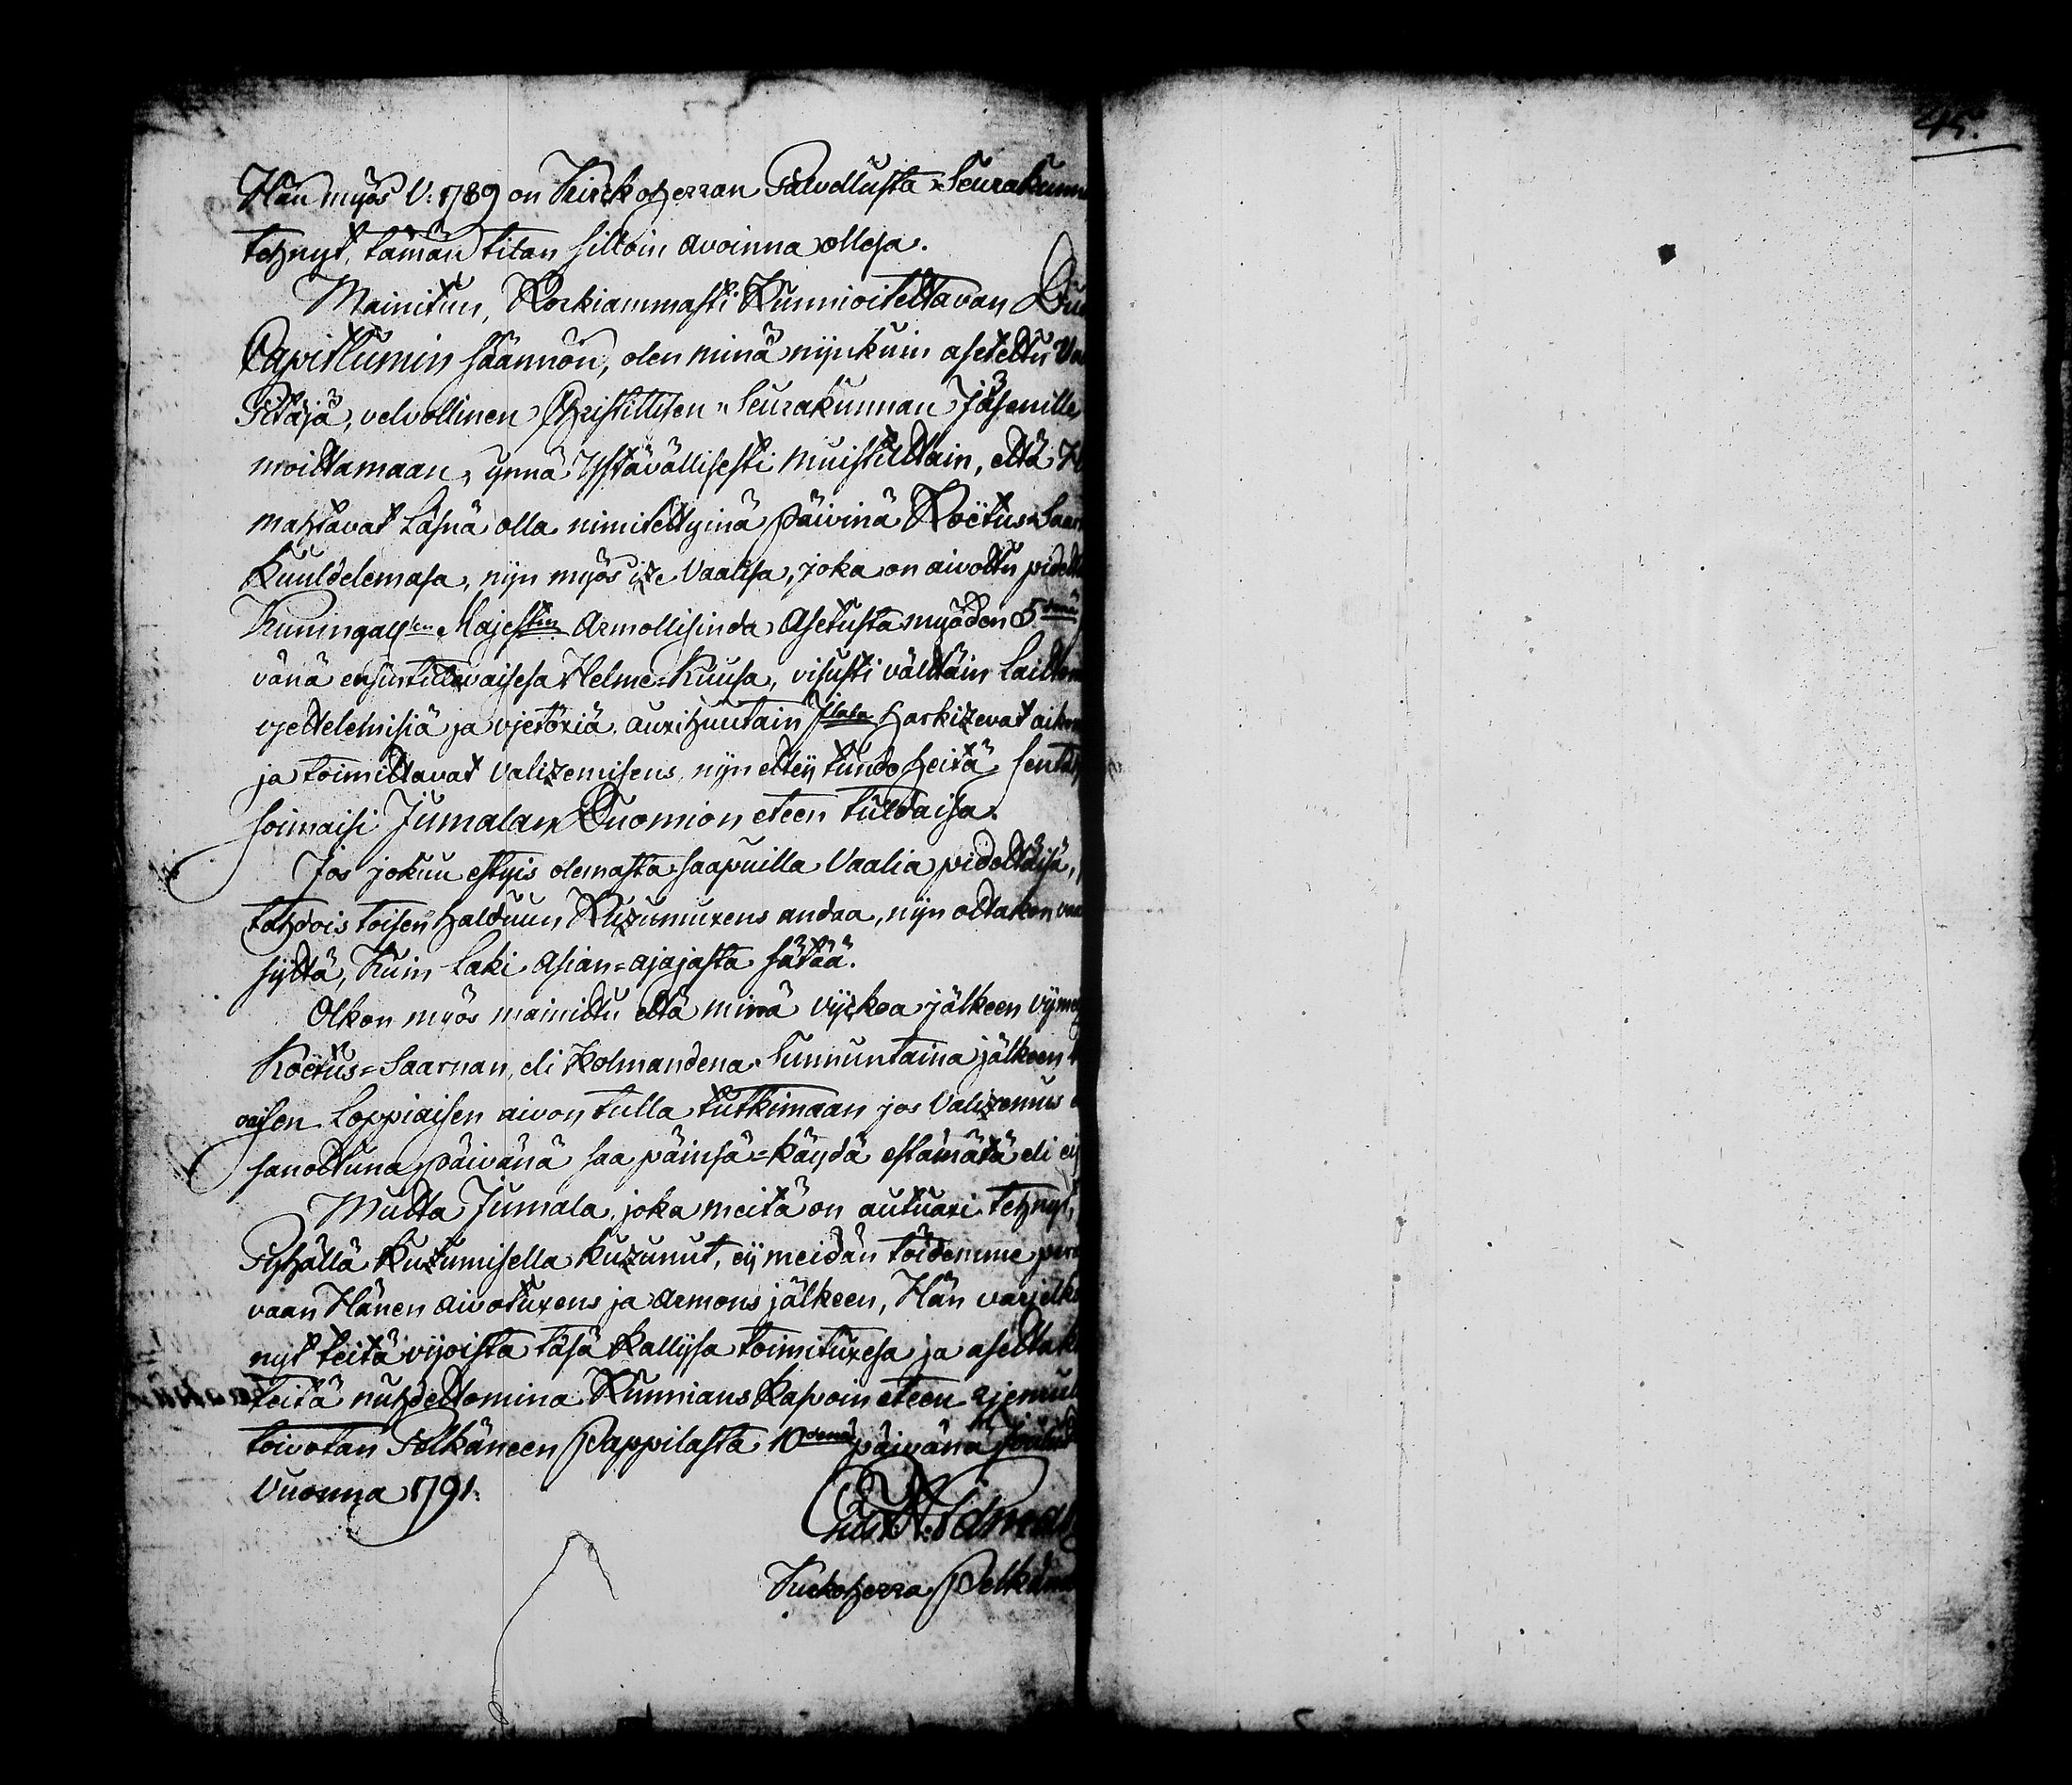 45.
Hän myös V: 1789 on Kirckoherran Palvellusta Seurakunna
tehnyt, tämän tilan silloin avoinna ollesa.
Mainitun, Korkiammasti Kunnioitettavan Duo
Capitlumin säännön, olen minä nijnkuin asetettu Va
Pitäjä, velvollinen Christillisen Seurakunnan Jäsenille
moittamaan, ynnä Ystävällisesti muistuttain, että H
mahtavat Läsnä olla nimitettyinä päivinä Koëtus=Saar
Kuuldelemasa, nijn myös ize Vaalisa, joka on aivottu pidettä
Kuningall:sen Majest:tin Armollisinda Asetusta myöden 5:denä
vänä ensistullevaisesa Helme=Kuusa, visusti välttäin laittom
yettelemisiä ja vjetöxiä, auxihuutain harkizevat
ja toimittavat Valizemisens, nijn ettej tundo heitä sentäh
soimaisi Jumalan Duomion eteen tuldaisa.
Jos jokuu estyis olemasta saapuilla Vaalia pidettäisä,
tahdois toisen halduun Kuzumuxens andaa, nijn ottakon vaa
sijttä, Kuin Laki Asian=ajajasta sätää.
Olkon myös mainittu että minä vijckoa jälkeen vijme
Koëtus=Saarnan, eli Kolmandena Sunnuntaina jälkeen
vaisen Loppiaisen aivon tulla tutkimaan jos Valizemus
sanottuna päivänä saa päinsä=käydä estämätä eli eij
Mutta Jumala, joka meitä on autuaxi tehnyt,
Pyhällä Kuzumisella Kuzunut, eij meidän töidemme pera
vaan Hänen aivotuxens ja Armons jälkeen, Hän varjelko
nyt teitä vijoista täsä Kallijsa toimituxesa ja asettako
teitä nuhdettomina Kunnians Kasvoin eteen
toivotan Pelkäneen Pappilasta 10:denä päivänä Joulu
Vuonna 1791.
Kirckoherra Pelkäne